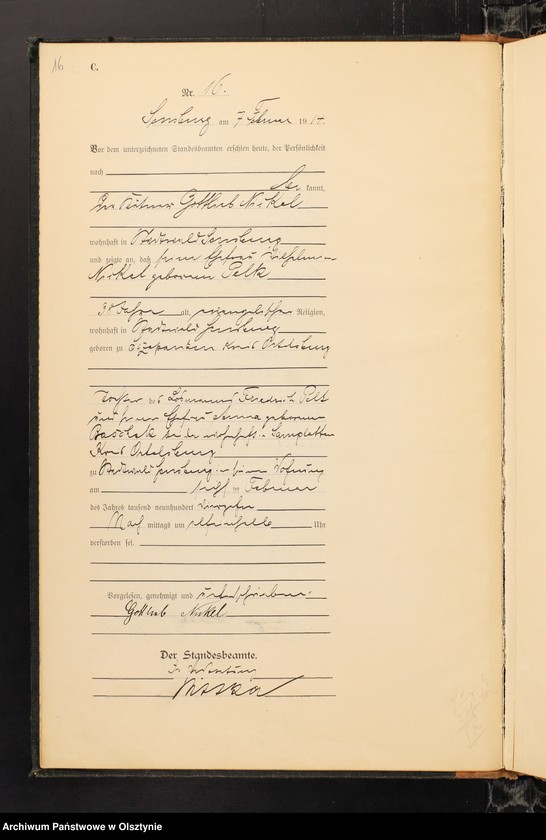 16
C.
Nr. 16.
Sensburg am 7 Februar 1914.
Vor dem unterzeichneten Standesbeamten erschien heute, der Persönlichkeit
nach
be kannt,
Gottlieb Nickel
wohnhaft in Stadtwald Sensburg
und zeigte an, daß seine Ehefrau Wilhelmine
Nickel geborenen Pelk
38 Jahre alt, evangelischer Religion,
wohnhaft in Stadtwald Sensburg
geboren zu Kreis Ortelsburg
Tochter des Losmanns Friedrich Pelk
und seiner Ehefrau Anna geborenen
beide wohnhaft in Samplatten
Kreis Ortelsburg
zu Stadtwald Sensburg in seiner Wohnung
am im Februar
des Jahres tausend neunhundert vierzehn
Nach mittags um Uhr
verstorben sei.
Vorgelesen, genehmigt und unterschrieben.
Gottlieb Nickel
Der Standesbeamte.
In Vertretung
Archiwum Państwowe w Olsztynie